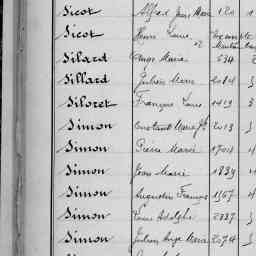 Sicot Alfred Jean Marie 120
Sicot Pierre Louis
Silard Ange Marie 534
Sillard Julien Marie
Siloret François Louis 1419 3
Simon Constant Marie Jh 2013
Simon Pierre Marie 1704 4
Simon Jean Marie 1839 4
Simon Augustin François 1567 4
Simon Louis Adolphe 2337
Simon Julien Ange Marie 2074